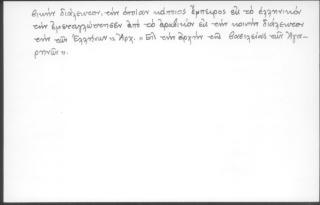 θικὴν διάλεκτον, τὴν ὁποίαν κάποιος ἔμπειρος εἰς τὸ ἑλληνικὸν
τὴν ἐμεταγλώττησεν ἀπὸ τὸ ἀραβικὸν εἰς τὴν κοινὴν διάλεκτον
τὴν τῶν Ἑλλήνων». Ἀρχ. «Εἰς τὴν ἀρχὴν τῆς βασιλείας τῶν Ἀγα-
ρηνῶν».